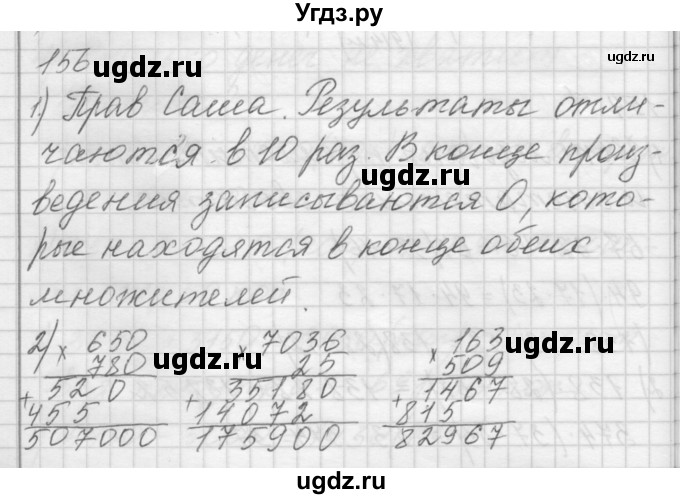 Угдз.ру
156
ugdz.ru
ugdz.ru
1) Прав Саша. Результаты отли-
чаются в 10 раз. В конце произ-
ugdz.ru
ведения записываются 0, кото-
рые находятся в конце обеих
множителей.
2) × 650 × 7036 × 163
780 25 509
ugdz.ru ugdz.ru
+ 520 + 35180 + 1467
455 14072 815
507000 175900 82967
ugdz.ru
Угдз.ру